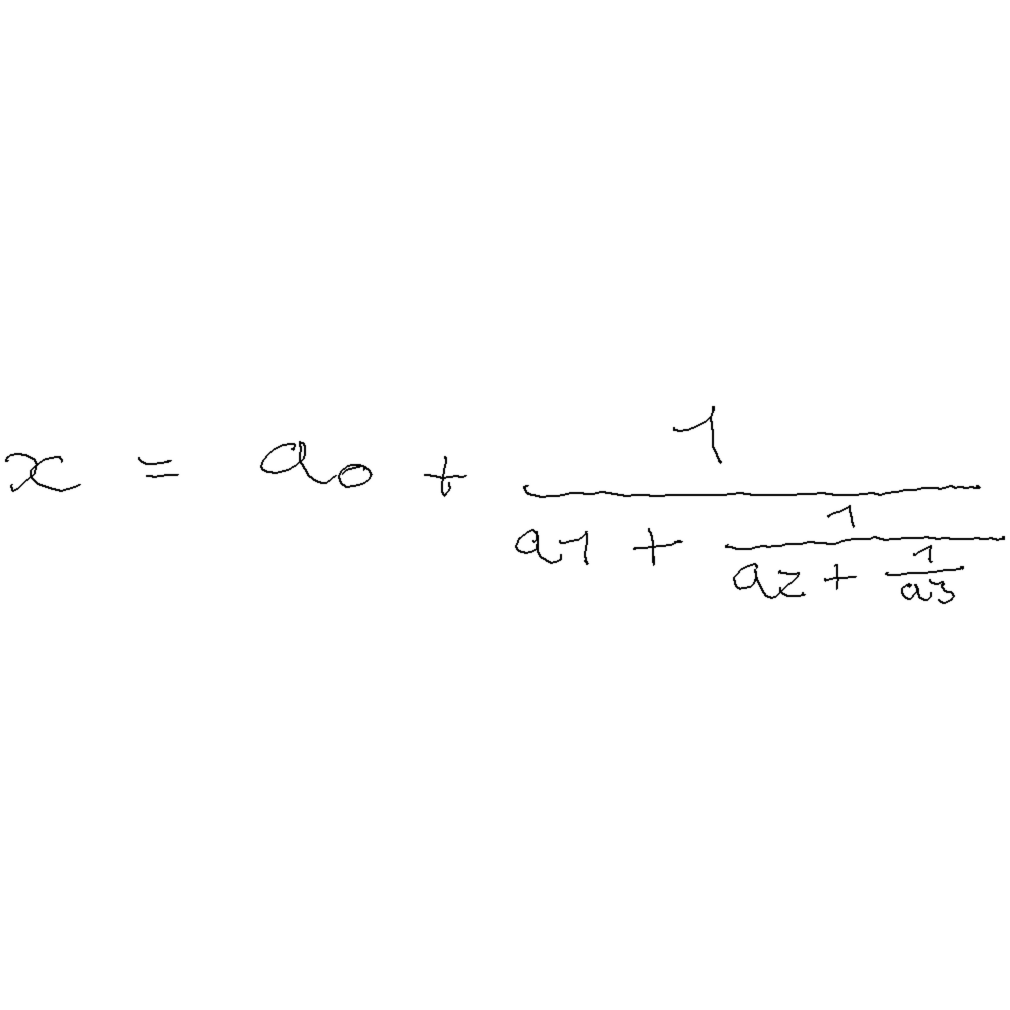 x = a_0 + \frac{1}{a_1 + \frac{1}{a_2 + \frac{1}{a_3}}}